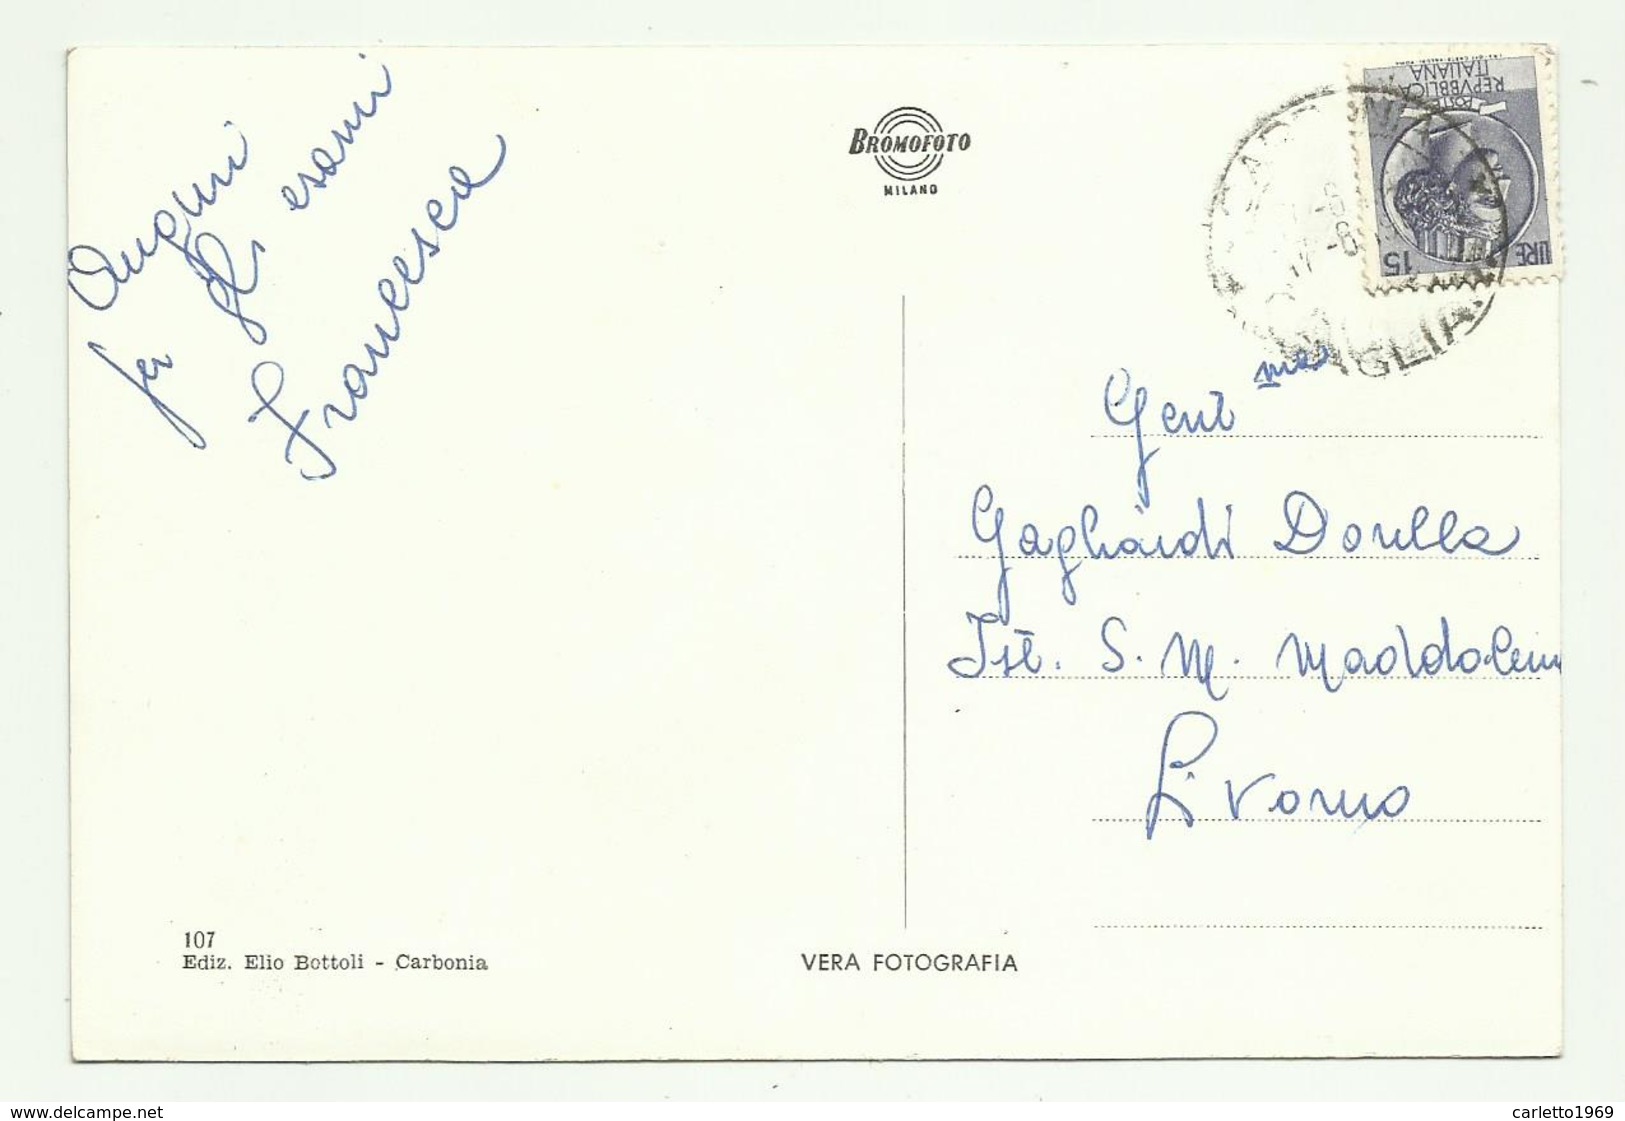 Auguri
per gli esami
Francesca
BROMOFOTO
MILANO
POSTE
REPVBBLICA
ITALIANA
LIRE 15
Gent ma
Gagliardi Dorella
Ist. S. M. Maddalena
Livorno
107
Ediz. Elio Bottoli - Carbonia
VERA FOTOGRAFIA
www.delcampe.net
carletto1969